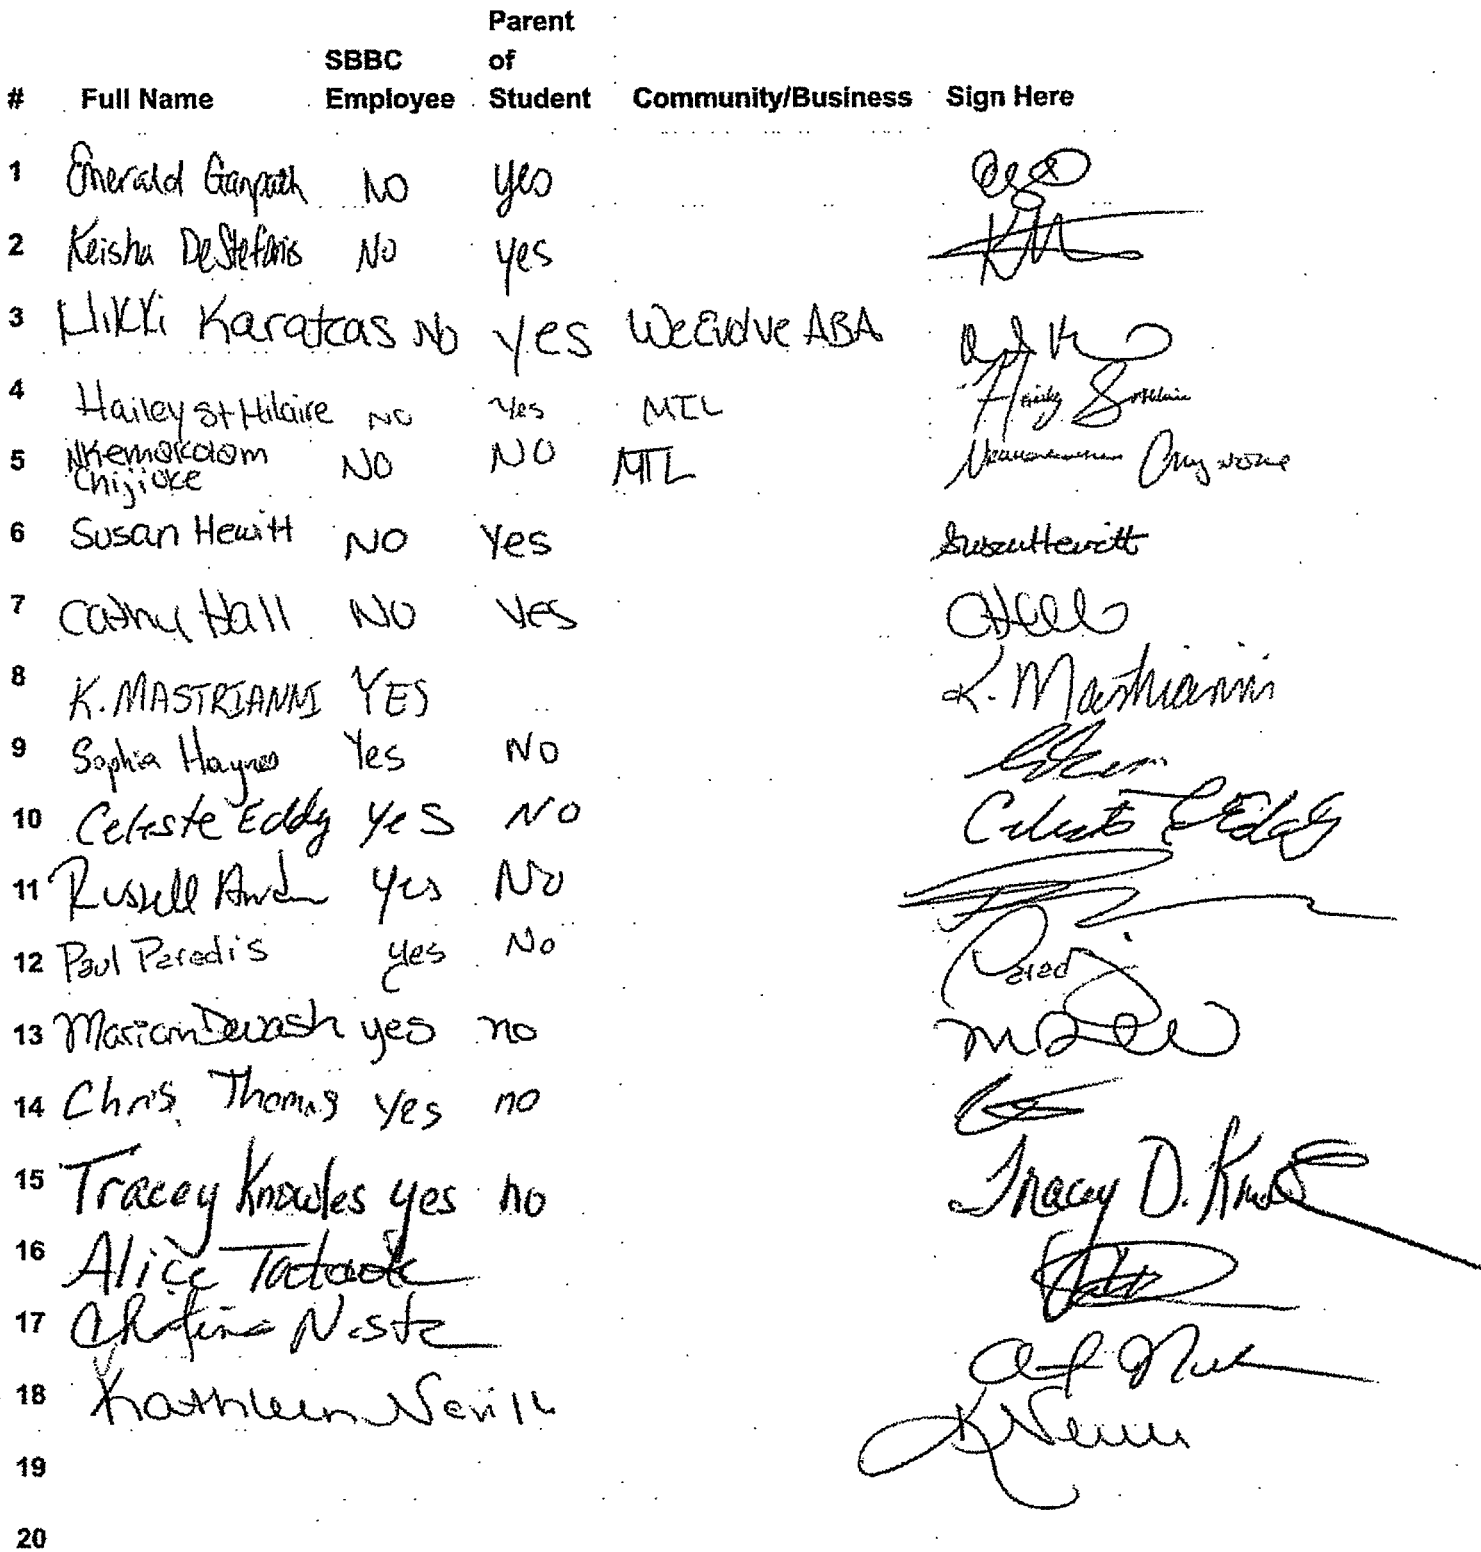 Parent
SBBC of
# Full Name Employee Student Community/Business Sign Here
1 Emerald Ganpath NO yes
2 Keisha DeStefanis No yes
3 Nikki Karatcas No yes WeEvolve ABA
4 Hailey St Hilaire NO Yes MTL Hailey St Hilaire
5 Nkemakolam NO NO MTL
Chijioke
6 Susan Hewitt NO Yes Susan Hewitt
7 Cathy Hall NO Yes CHall
8 K. MASTRIANNI YES K. Mastrianni
9 Sophia Haynes Yes No
10 Celeste Eddy Yes NO Celeste Eddy
11 Russell yes No
12 Paul Peredis yes No
13 Mariam Dewash yes no
14 Chris Thomas Yes no
15 Tracey Knowles yes no Tracey D.
16 Alice
17
18 Kathleen Nevill
19
20